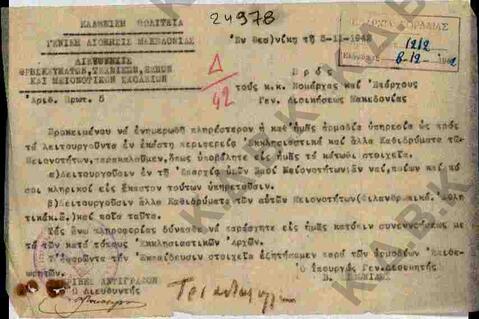 24978
ΕΛΛΗΝΙΚΗ ΠΟΛΙΤΕΙΑ
ΓΕΝΙΚΗ ΔΙΟΙΚΗΣΙΣ ΜΑΚΕΔΟΝΙΑΣ
Ἐν Θεσ)νίκη τῇ 5-11-1942
ΔΙΕΥΘΥΝΣΙΣ
ΘΡΗΣΚΕΥΜΑΤΩΝ, ΤΕΧΝΙΚΩΝ, ΞΕΝΩΝ
ΚΑΙ ΜΕΙΟΝΟΤΙΚΩΝ ΣΧΟΛΕΙΩΝ
Ἀριθ. Πρωτ. 5
Δ
42
1212
8-12-1942
Πρός
τούς κ.κ. Νομάρχας καί Ἐπάρχους
Γεν. Διοικήσεως Μακεδονίας
Προκειμένου νά ἐνημερωθῇ πληρέστερον ἡ καθ' ἡμᾶς ἁρμοδία ὑπηρεσία ὡς πρός
τά λειτουργοῦντα ἐν ἑκάστῃ περιφερείᾳ Ἐκκλησιαστικά καί ἄλλα Καθιδρύματα τῶν
Μειονοτήτων, παρακαλοῦμεν, ὅπως ὑποβάλητε εἰς ἡμᾶς τά κάτωθι στοιχεῖα.
α)Λειτουργοῦσιν ἐν τῇ Ἐπαρχίᾳ ὑμῶν Ναοί Μειονοτήτων; Ἐν ναί, ποῖοι καί πό
σοι κληρικοί εἰς ἕκαστον τούτων ὑπηρετοῦσιν.
β)Λειτουργοῦσιν ἄλλα Καθιδρύματα τῶν αὐτῶν Μειονοτήτων (Φιλανθρωπικά, Ἀθλη
τικά κ.ἄ.) καί ποῖα ταῦτα.
Τάς ἄνω πληροφορίας δύνασθε νά παράσχητε εἰς ἡμᾶς κατόπιν συνεννοήσεως
μέ τά τῶν κατά τόπους Ἐκκλησιαστικῶν Ἀρχῶν.
Τ' ἀφορῶντα τήν Ἐκπαίδευσιν στοιχεῖα ἐζητήσαμεν παρά τῶν ἁρμοδίων Ἐπιθεω-
ρητῶν.
Ὁ Ὑπουργός Γεν. Διοικητής
ΑΝΤΙΓΡΑΦΟΝ
Ὁ Διευθυντής
Κ.Α.Β.Κ